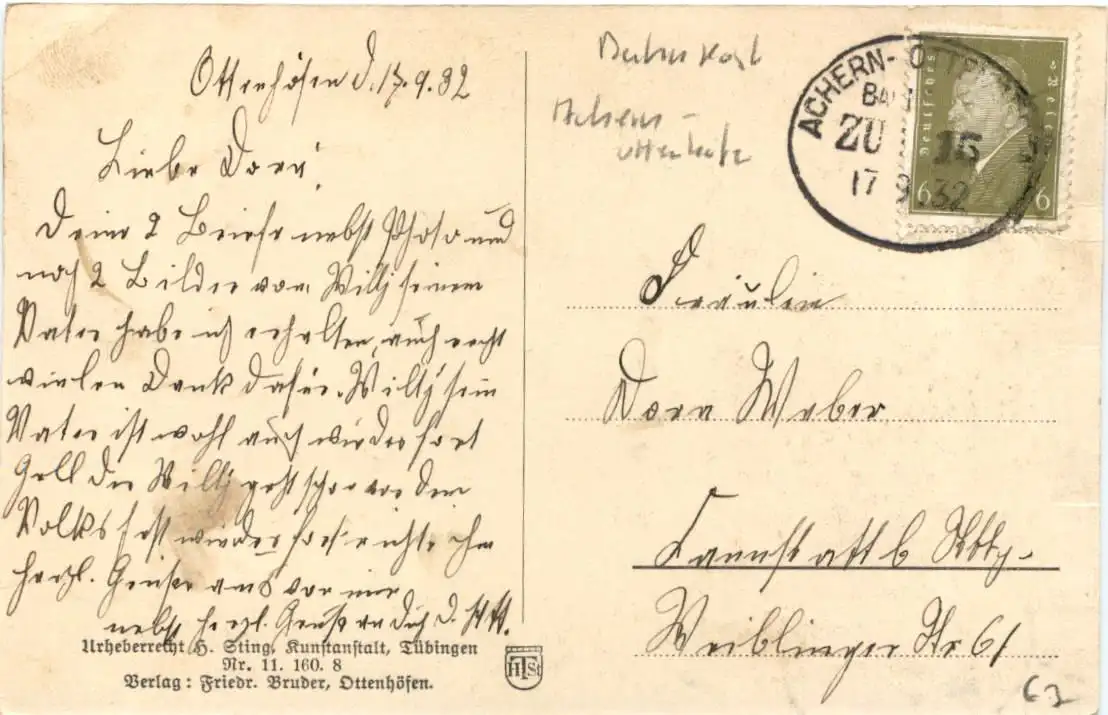 Ottenhöfen d. 17.9.32
Liebe Dora!
Deine 2 Briefe nebst Photo und
noch 2 Bilder vom Willy seinem
Vater habe ich erhalten, auch recht
vielen Dank dafür. Willy sein
Vater ist wohl auch wieder fort
Gell der Willy geht schon vor dem
Volksfest wieder fort richte ihm
herzl. Grüße aus von mir
nebst herzl. Grüße an Dich d.
Urheberrecht H. Sting, Kunstanstalt, Tübingen
Nr. 11. 160. 8
Verlag: Friedr. Bruder, Ottenhöfen.
HTSt
Bahnpost
Achern-
ACHERN-OTTENH
BA
ZU 15
17 9 32
Deutsches Reich
6 6
Fräulein
Dora Weber
Cannstatt b Sttg.
Weiblinger Str 61
63